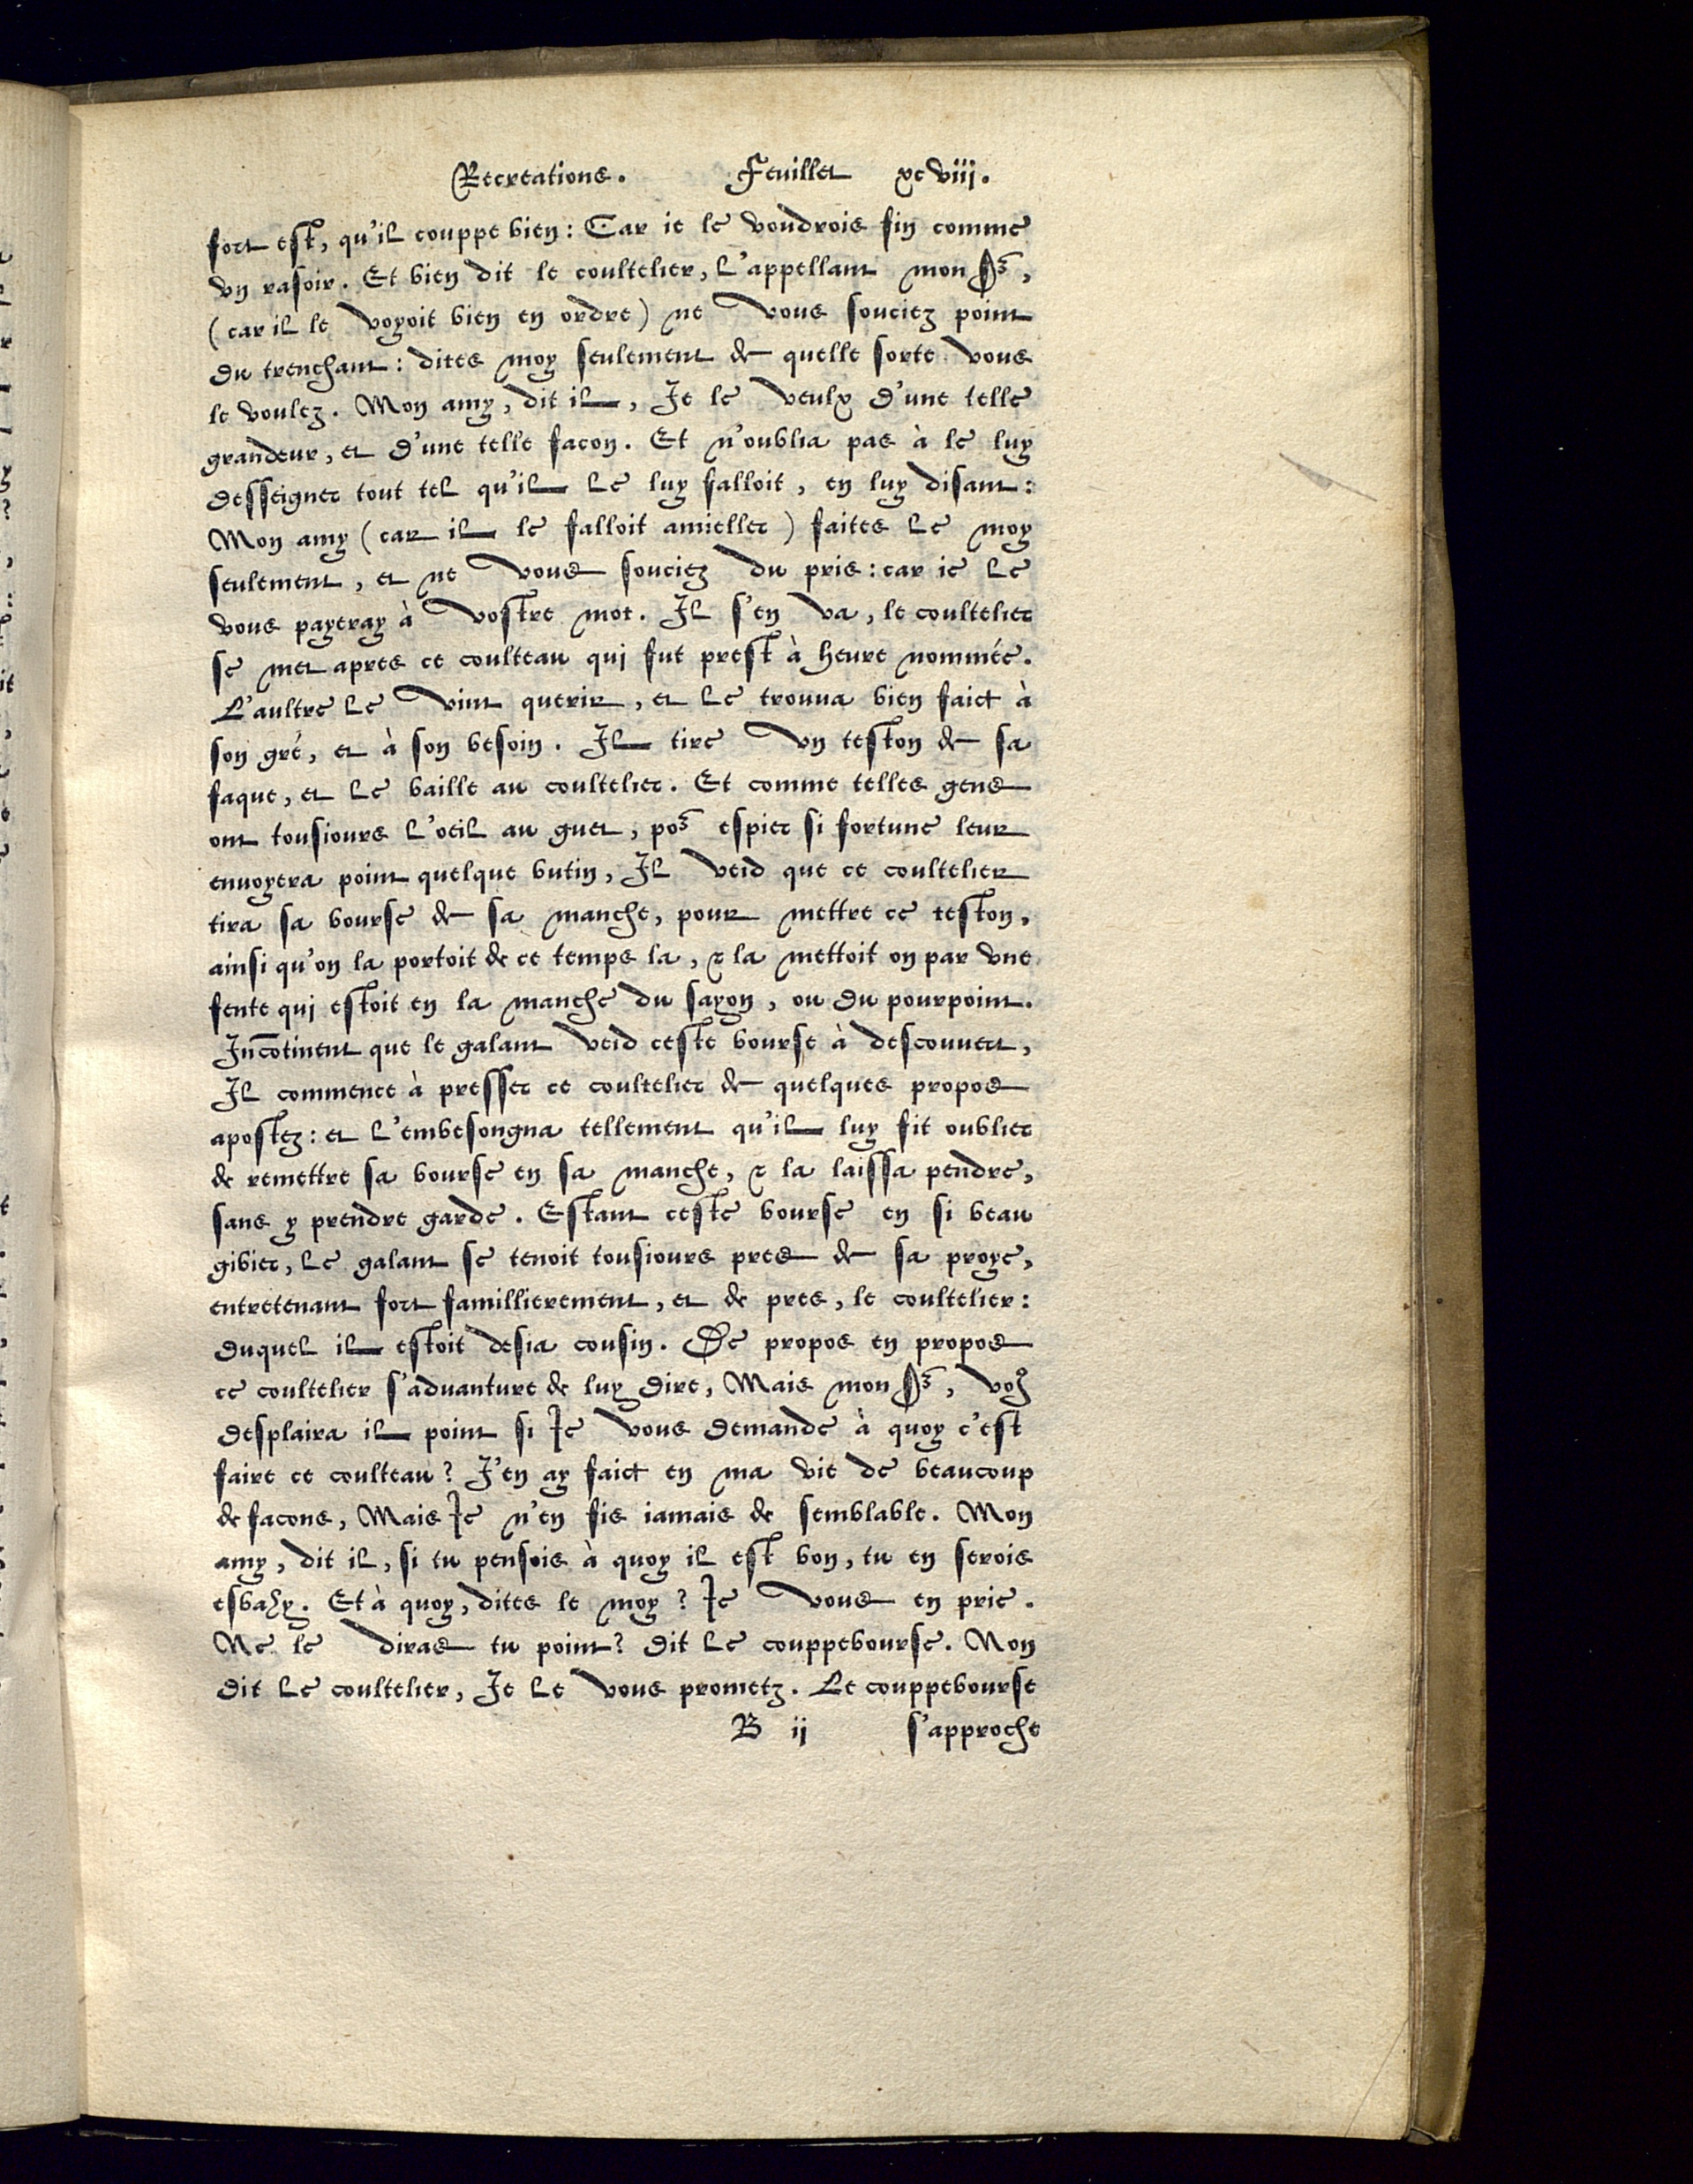 Recreations. Feuillet xcviij.
fort est, qu'il couppe bien: Car ie le voudrois fin comme
vn rasoir. Et bien dit le coultelier, l'appellant mon Sr,
(car il le voyoit bien en ordre) ne vous souciez point
du trenchant: dites moy seulement de quelle sorte vous
le voulez. Mon amy, dit il, Je le veulx d'une telle
grandeur, et d'une telle facon. Et n'oublia pas à le luy
desseigner tout tel qu'il le luy falloit, en luy disant:
Mon amy (car il le falloit amieller) faites le moy
seulement, et ne vous souciez du pris: car ie le
vous payeray à vostre mot. Il s'en va, le coultelier
se met apres ce coulteau qui fut prest à heure nommée.
L'aultre le vint querir, et le trouua bien faict à
son gré, et à son besoin. Il tire vn teston de sa
faque, et le baille au coultelier. Et comme telles gens
ont tousiours l'oeil au guet, por espier si fortune leur
enuoyera point quelque butin, Il veid que ce coultelier
tira sa bourse de sa manche, pour mettre ce teston,
ainsi qu'on la portoit de ce temps la, & la mettoit on par vne
fente qui estoit en la manche du sayon, ou du pourpoint.
Incōtinent que le galant veid ceste bourse à descouuert,
Il commence à presser ce coultelier de quelques propos
apostez: et l'embesongna tellement qu'il luy fit oublier
de remettre sa bourse en sa manche, & la laissa pendre,
sans y prendre garde. Estant ceste bourse en si beau
gibier, le galant se tenoit tousiours pres de sa proye,
entretenant fort famillierement, et de pres, le coultelier:
duquel il estoit desia cousin. De propos en propos
ce coultelier s'aduanture de luy dire, Mais mon Sr, vo9
desplaira il point si Je vous demande à quoy c'est
faire ce coulteau? J'en ay faict en ma vie de beaucoup
de facons, Mais Je n'en fis iamais de semblable. Mon
amy, dit il, si tu pensois à quoy il est bon, tu en serois
esbahy. Et à quoy, dites le moy? Je vous en prie.
Ne le diras tu point? dit le couppebourse. Non
dit le coultelier, Je le vous prometz. Le couppebourse
B ij s'approche